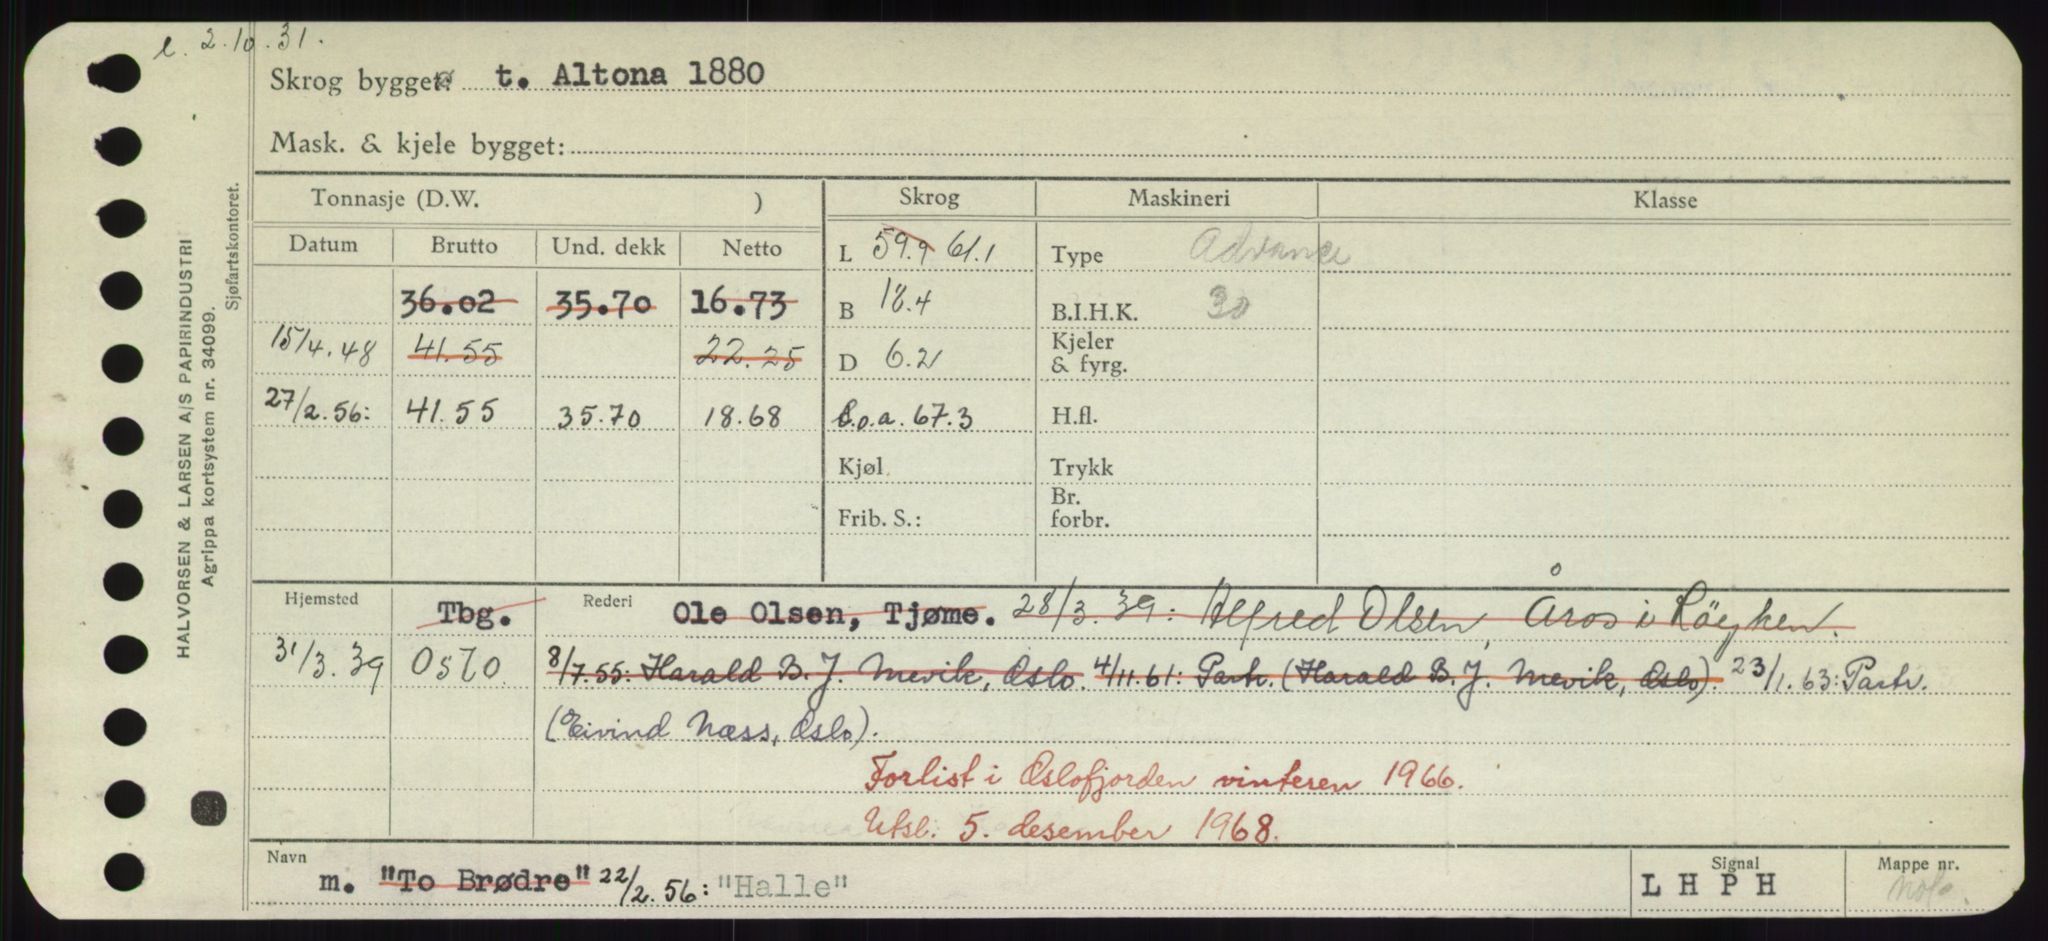 e. 2.10.31.
Skrog bygget: t. Altona 1880
Mask. & kjele bygget:
Tonnasje (D.W. ) Skrog Maskineri Klasse
Datum Brutto Und. dekk Netto L 59.9 61.1 Type Advance
36.02 35.70 16.73 B 18.4 B.I.H.K. 30
15/4.48 41.55 22.25 D 6.2 Kjeler & fyrg.
27/2.56: 41.55 35.70 18.68 L.o.a. 67.3 H.fl.
Kjøl Trykk
Frib. S.: Br. forbr.
Hjemsted Tbg. Rederi Ole Olsen, Tjøme. 28/3.39: Alfred Olsen, Åros i Röyken.
31/3.39 Oslo 8/7.55: Harald B. J. Mevik, Oslo. 4/11.61: Partr. (Harald B. J. Mevik, Oslo). 23/1.63: Partr.
(Eivind Næss, Oslo).
Forlist i Oslofjorden vinteren 1966.
Utsl. 5. desember 1968.
Navn m. "To Brødre" 22/2.56: "Halle" Signal LHPH Mappe nr.
HALVORSEN & LARSEN A/S PAPIRINDUSTRI
Agrippa kortsystem nr. 34099.
Sjøfartskontoret.